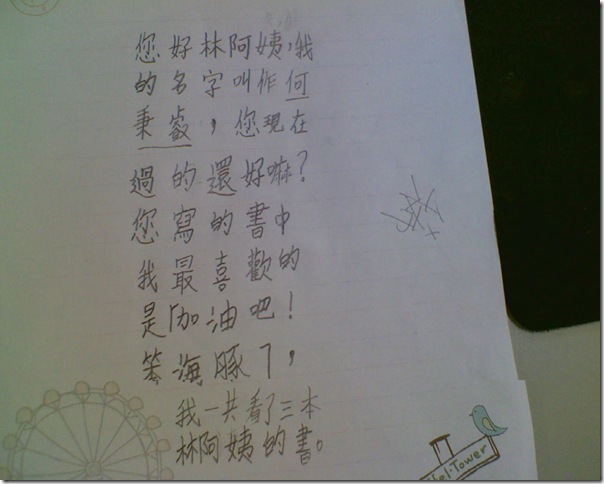 您好林阿姨,我
的名字叫作何
秉叡，您現在
過的還好嘛?
您寫的書中
我最喜歡的
是「加油吧!
笨海豚」，
我一共看了三本
林阿姨的書。
Tower